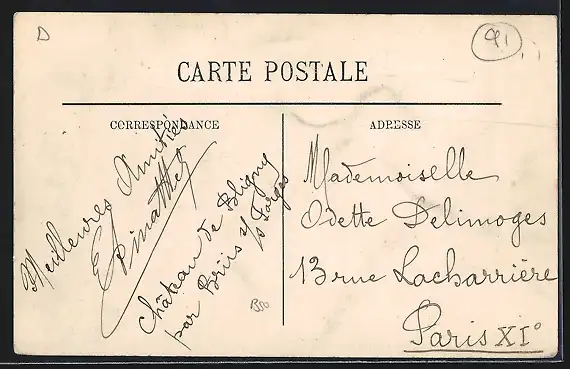 D
91
CARTE POSTALE
CORRESPONDANCE
ADRESSE
Meilleures Amitiés
Château de Bligny
par Briis s/s Forges
Mademoiselle
Odette Delimoges
13 rue Lacharrière
Paris XI°